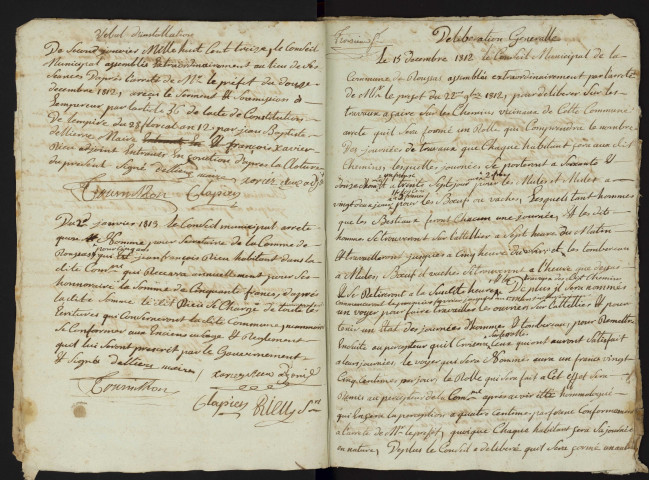 Vebal d'installation
De Second janvier Mille huit Cent treize, le Conseil
Municipal assemblé extraordinairement au lieu de ses
Séances Daprès l'arrêté de Mr le préfet du douze
decembre 1812, a reçu le Serment & Soumission à
L'empereur par l'article 56 de l'acte de Constitution
De l'empire du 28 floréal an 12, par jean Baptiste
dalliens Maire & françois xavier
Rieu adjoint Entrants En fonction d'après la Cloture
du présent Signé dalliens maire
Tourniston Clapier
Du 2e janvier 1813 le Conseil municipal arrete
quon Nomme pour Secretaire de la Comne de
Roussas jean françois Rieu habitant dans la
dite Comne qui Recevra annuellement pour Ses
honnoraire la Somme de Cinquante francs, daprès
la dite Somme le dit Rieu Se Charge de toute les
Ecritures qui Concerneront la dite Commune, & notamment
Se Conformer aux Enciens usage & Reglement
quil lui Seront prescrit par le Gouvernement
& Signé dalliens maire
Tourniston
Clapier Rieu Sre
Deliberation Generalle
Le 15 Decembre 1812 le Conseil Municipal de la
Commune de Roussas assemblée extraordinairement par l'arrêté
de Mr le prefet du 22e 9bre 1812, pour deliberer Sur les
travaux a faire Sur les Chemins vicinaux de Cette Commune
arrete quil Sera formé un Rolle qui Comprendra le nombre
des journées de travaux que Chaque habitant fera aux dits
Chemins, lesquelles journées Se porteront a Soixante &
douze a trente Sept jour pour les Mules et Mulets a
vingt deux jours pour les Bœuf ou vaches, Lesquels tant hommes
que les Bestiaux feront Chacun une journée, & les dits
homme Se trouveront Sur l'attellier a Sept heure du Matin
& travailleront jusques a Cinq heure du Soir, & les tombereaux
a Mulets, Bœuf & vaches Se trouveront a l'heure que dessus
& Se Retireront a la Susdite heure, De plus il Sera nommé
un voyer pour faire travailler les ouvriers Sur l'attellier & pour
tenir un Etat des journées d'homme & tombereaux, pour Remettre
Ensuite au percepteur quil Connoisse Ceux qui auront Satisfait
a leurs journées. le voyer qui Sera Nommé aura un franc vingt
Cinq Centimes par jour, le Rolle qui Sera fait a Cet effet Sera
Remis au percepteur de la Comne après avoir été homologué
qui En fera la perception a quatre Centimes par franc Conformement
a l'arreté de Mr le prefet, quoique Chaque habitant fera Sa journée
en nature, De plus le Conseil a deliberé quil Sera formé un autre